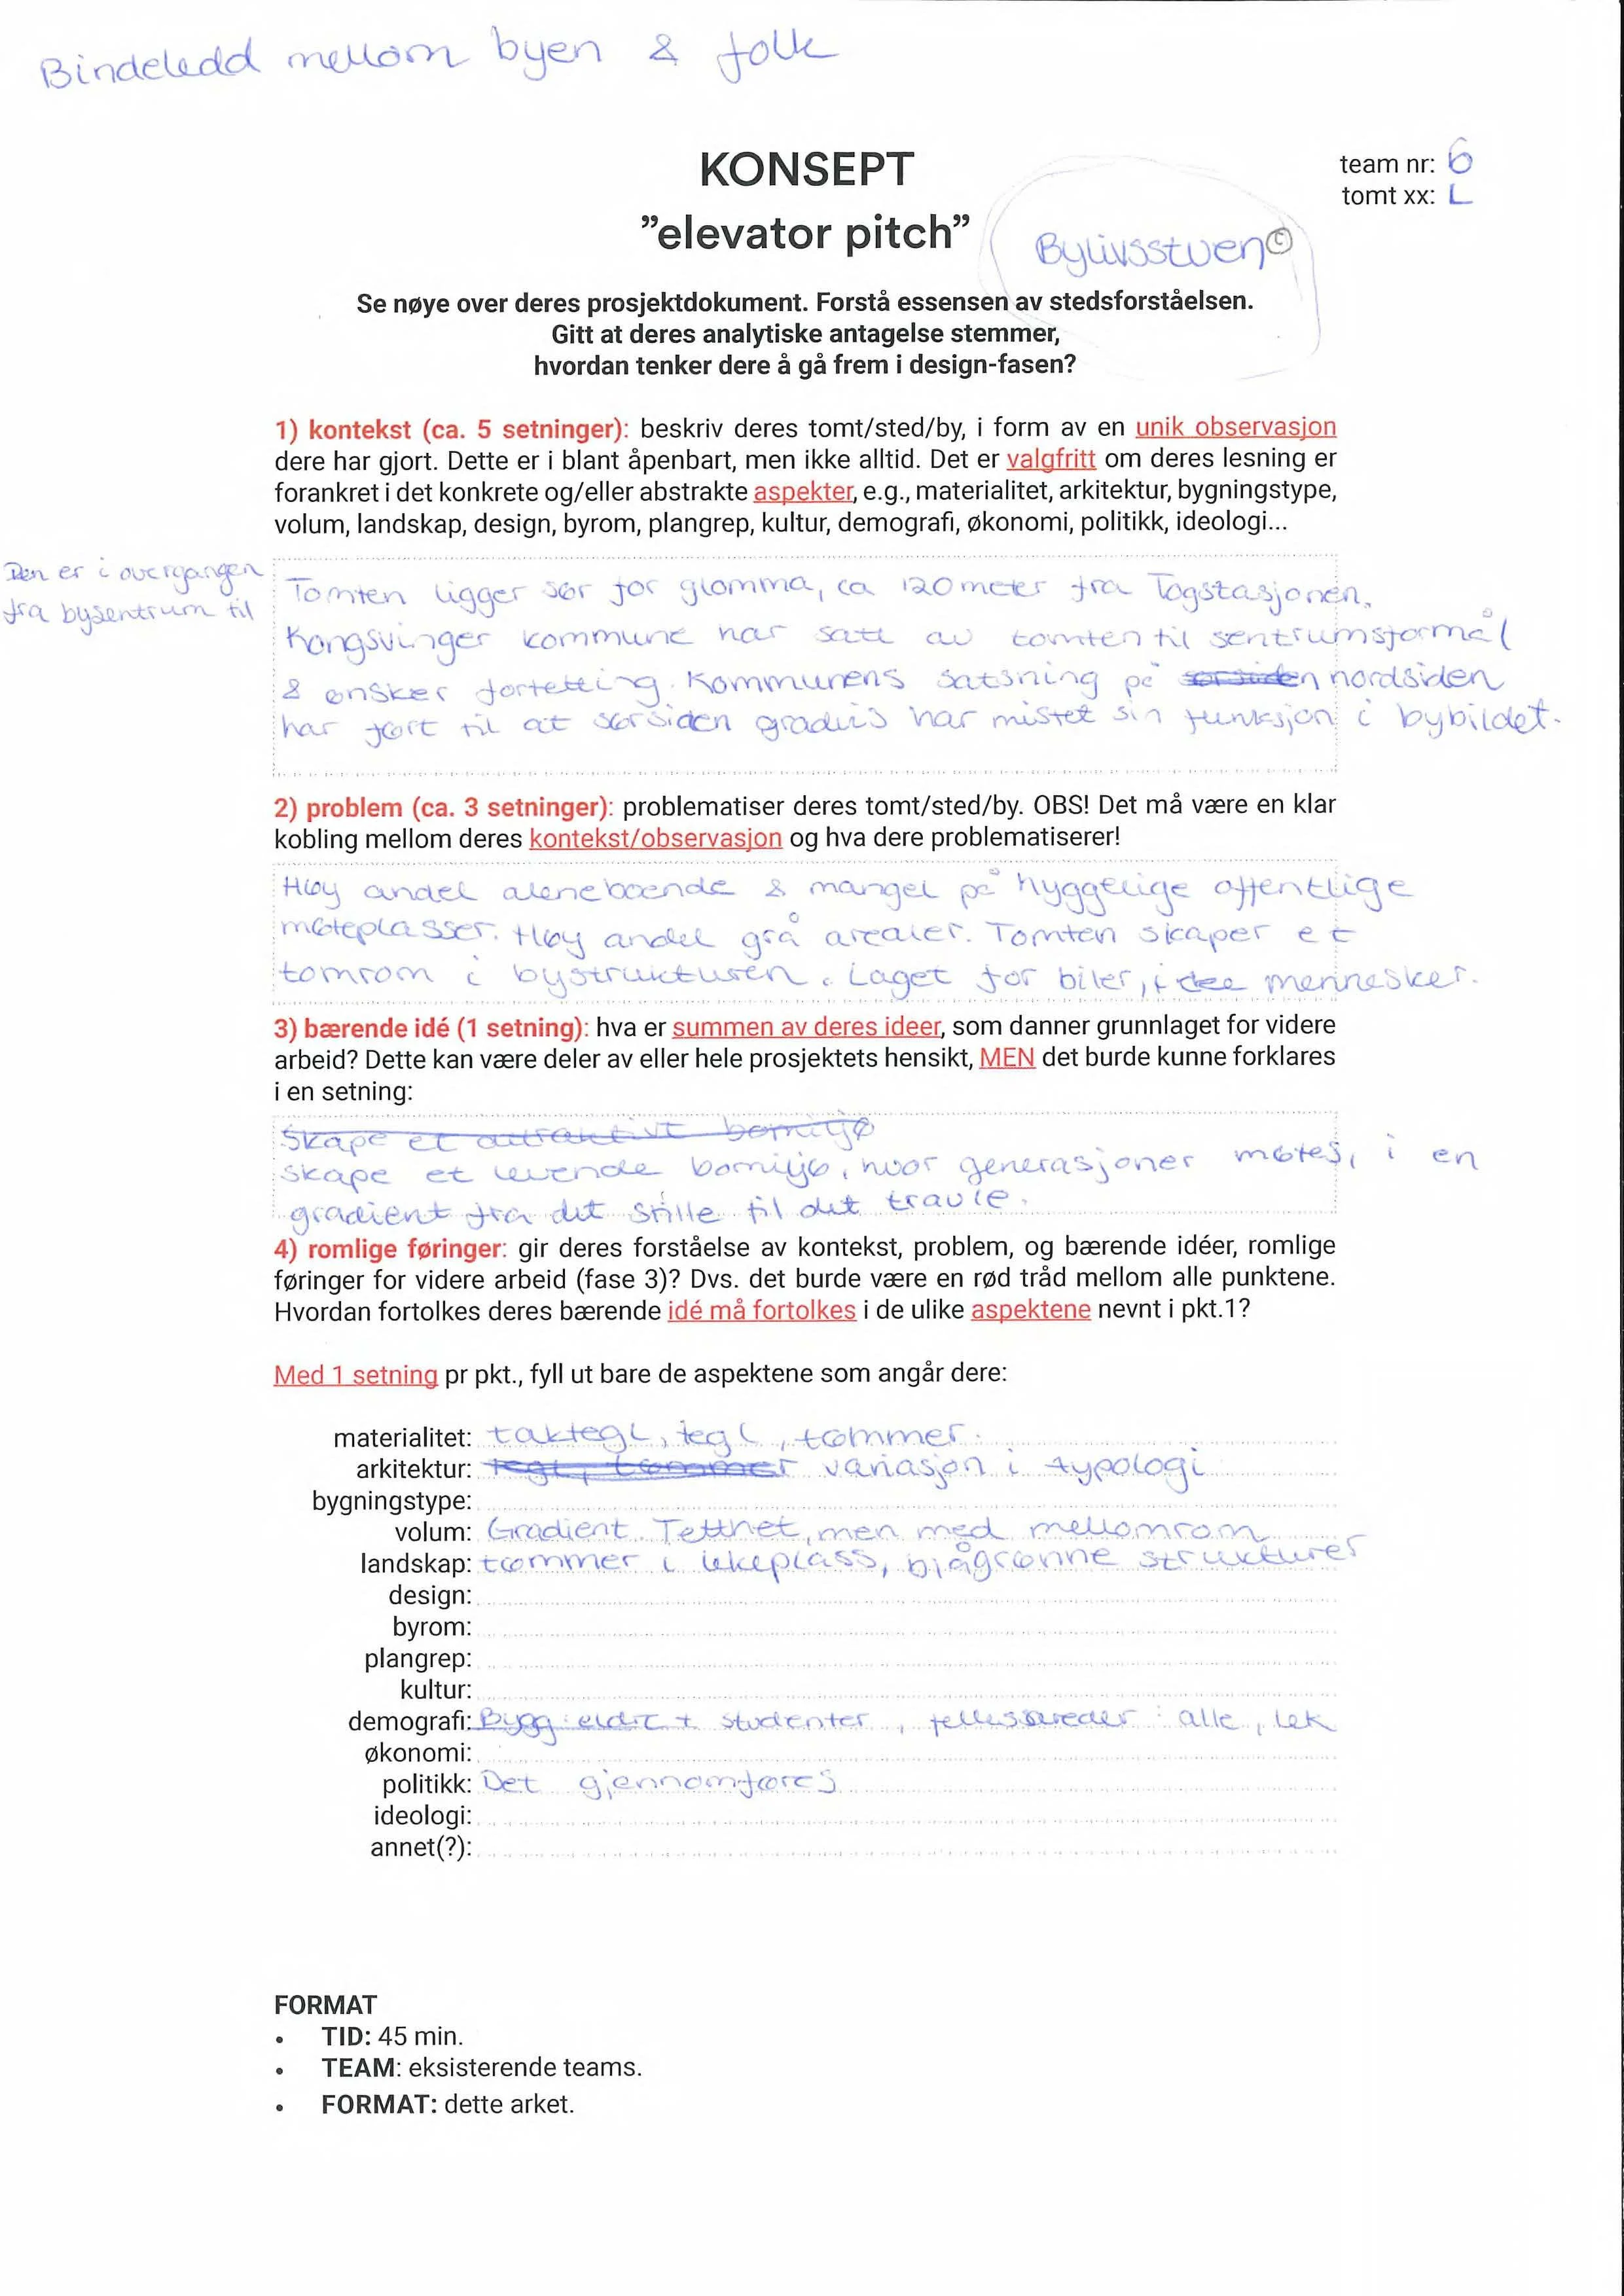 Bindeledd mellom byen & folk
KONSEPT
”elevator pitch”
team nr: 6
tomt xx: L
Bylivsstuen©
Se nøye over deres prosjektdokument. Forstå essensen av stedsforståelsen.
Gitt at deres analytiske antagelse stemmer,
hvordan tenker dere å gå frem i design-fasen?
1) kontekst (ca. 5 setninger): beskriv deres tomt/sted/by, i form av en unik observasjon
dere har gjort. Dette er i blant åpenbart, men ikke alltid. Det er valgfritt om deres lesning er
forankret i det konkrete og/eller abstrakte aspekter, e.g., materialitet, arkitektur, bygningstype,
volum, landskap, design, byrom, plangrep, kultur, demografi, økonomi, politikk, ideologi...
Den er i overgangen
fra bysentrum til
Tomten ligger sør for glomma, ca 120 meter fra Togstasjonen.
Kongsvinger kommune har satt av tomten til sentrumsformål
& ønsker fortetting. Kommunens satsning på sørsiden nordsiden
har ført til at sørsiden gradvis har mistet sin funksjon i bybildet.
2) problem (ca. 3 setninger): problematiser deres tomt/sted/by. OBS! Det må være en klar
kobling mellom deres kontekst/observasjon og hva dere problematiserer!
Høy andel aleneboende & mangel på hyggelige offentlige
møteplasser. Høy andel grå arealer. Tomten skaper et
tomrom i bystrukturen. Laget for biler, mennesker.
3) bærende idé (1 setning): hva er summen av deres ideer, som danner grunnlaget for videre
arbeid? Dette kan være deler av eller hele prosjektets hensikt, MEN det burde kunne forklares
i en setning:
Skape et attraktivt bomiljø
skape et levende bomiljø, hvor generasjoner møtes, i en
gradient fra det stille til det travle.
4) romlige føringer: gir deres forståelse av kontekst, problem, og bærende idéer, romlige
føringer for videre arbeid (fase 3)? Dvs. det burde være en rød tråd mellom alle punktene.
Hvordan fortolkes deres bærende idé må fortolkes i de ulike aspektene nevnt i pkt.1?
Med 1 setning pr pkt., fyll ut bare de aspektene som angår dere:
materialitet: taktegl, tegl, tømmer.
arkitektur: tegl, tømmer variasjon i typologi
bygningstype:
volum: Gradient. Tetthet, men med mellomrom
landskap: tømmer i lekeplass, blågrønne strukturer
design:
byrom:
plangrep:
kultur:
demografi: Bygg: eldre + studenter, fellesarealer: alle, lek
økonomi:
politikk: Det gjennomføres
ideologi:
annet(?):
FORMAT
• TID: 45 min.
• TEAM: eksisterende teams.
• FORMAT: dette arket.